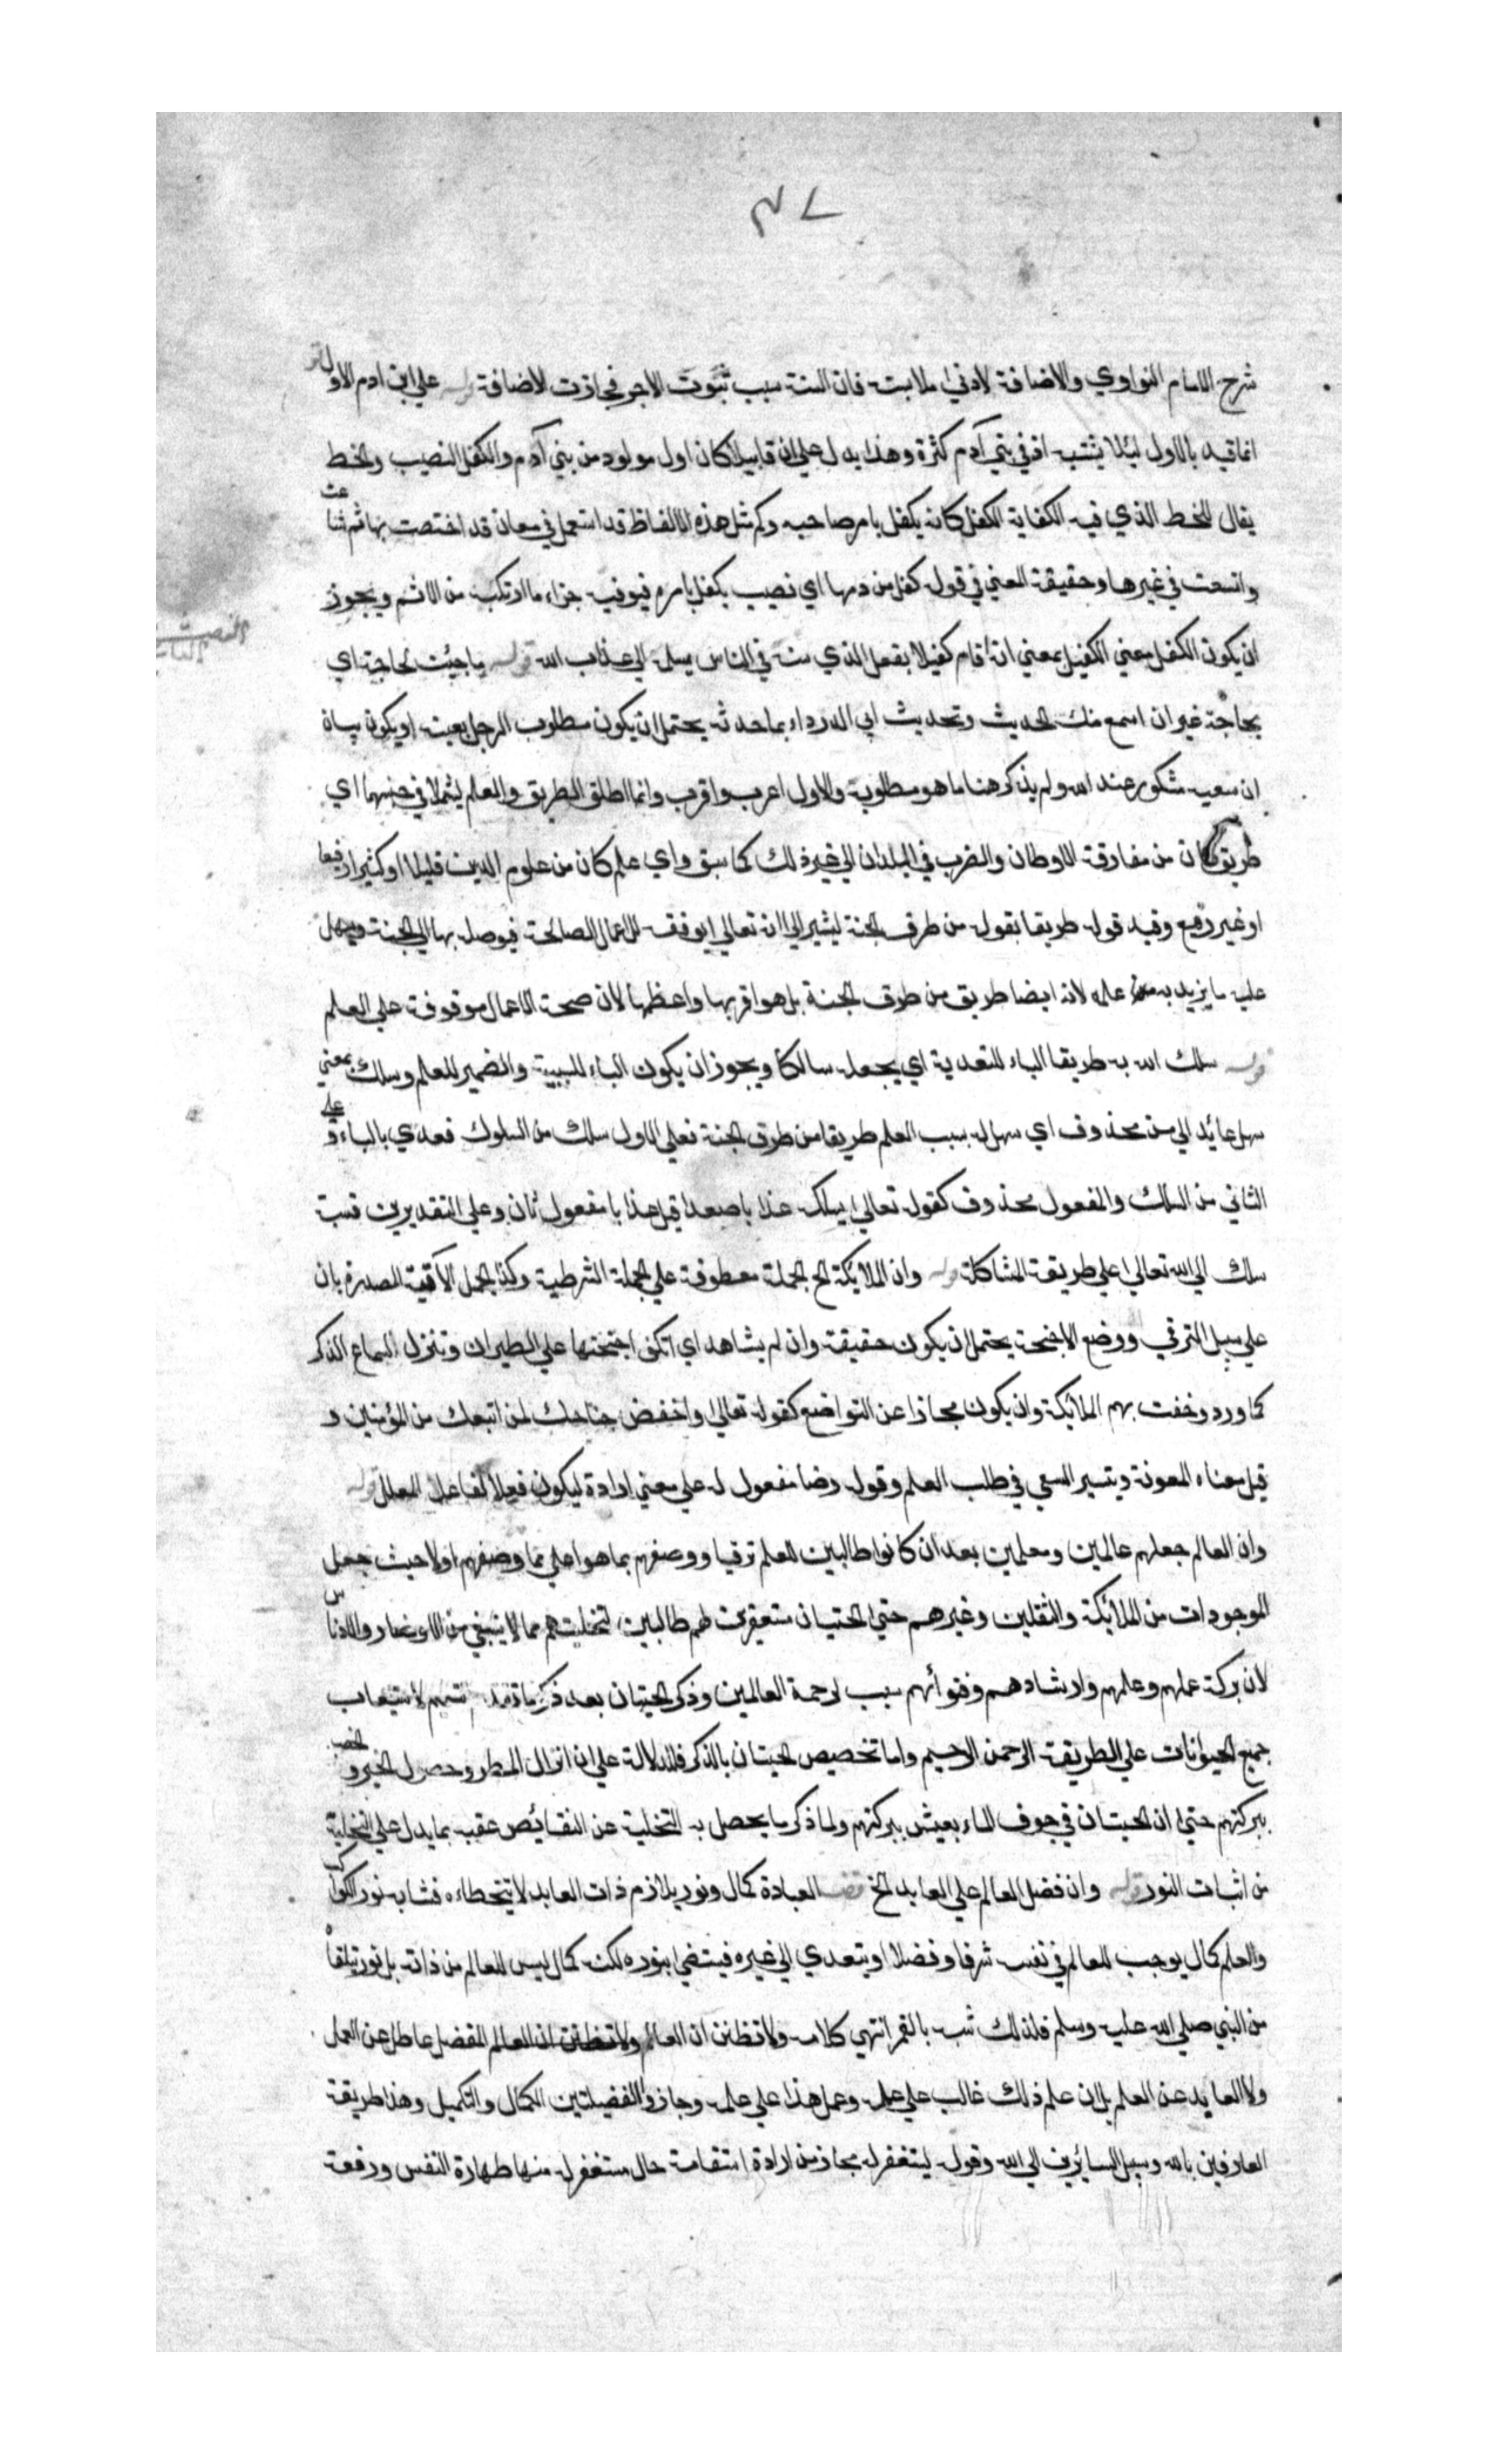 ٣٧
شرح الامام النواوي والاضافة لادني ملابسة فان السنة سبب ثبوت الاجر فجازت الاضافة قوله علي ابن ادم الاول
انما قيد بالاول لئلا يشتبه اذ في بني آدم كثرة وهذا يدل علي ان قابيل كان اول مولود من بني آدم والكفل النصيب والحظ
يقال للحظ الذي فيه الكفاية الكفل كانه يكفل بامر صاحبه وكم مثل هذه الالفاظ قد استعمل في معان قد اختصت بها ثم شاعت
واتسعت في غيرها وحقيقة المعني في قوله كفل من دمها اي نصيب يكفل بامره فيوفيه جزاء ما ارتكب من الاثم ويجوز
ان يكون الكفل بمعني الكفيل بمعني انه اقام كفيلا بفعل الذي سنه في الناس يسلمه الي عذاب الله قوله ما جئت لحاجة اي
بحاجة غير ان اسمع منك الحديث وتحديث ابي الدرداء بما حدثه يحتمل ان يكون مطلوب الرجل بعينه او يكون بيان
ان سعيه مشكور عند الله ولم يذكر هنا ما هو مطلوبه والاول اعرب واقرب وانما اطلق الطريق والعلم ليشملا في جنسهما اي
طريق كان من مفارقة الاوطان والضرب في البلدان الي غير ذلك كما سبق واي علم كان من علوم الدين قليلا او كثيرا رفيعا
او غير رفيع وقيد قوله طريقا بقوله من طرق الجنة ليشير الي انه تعالي يوفقه للاعمال الصالحة فيوصله بها الي الجنة ويسهل
عليه ما يزيد به علمه لانه ايضا طريق من طرق الجنة بل هو اقربها واعظمها لان صحة الاعمال موقوفة علي العلم
قوله سلك الله به طريقا الباء للتعدية اي يجعله سالكا ويجوز ان يكون الباء للسببية والضمير للعلم وسلك بمعني
سهل عائد الي من محذوف اي سهل له بسبب العلم طريقا من طرق الجنة فعلي الاول سلك من السلوك فعدي بالباء وعلي
الثاني من السلك والمفعول محذوف كقوله تعالي يسلكه عذابا صعدا قيل عذابا مفعول ثان وعلي التقديرين نسبة
سلك الي الله تعالي علي طريقة المشاكلة قوله وان الملائكة الخ الجملة معطوفة علي الجملة الشرطية وكذا الجمل الآتية المصدرة بان
علي سبيل الترقي ووضع الاجنحة يحتمل ان يكون حقيقة وان لم يشاهد اي تكف اجنحتها علي الطيران وتنزل لسماع الذكر
كما ورد وحفت بهم الملائكة وان يكون مجازا عن التواضع كقوله تعالي واخفض جناحك لمن اتبعك من المؤمنين و
قيل معناه المعونة وتيسير السعي في طلب العلم وقوله رضا مفعول له علي معني ارادة ليكون فعلا لفاعل المعلل قوله
وان العالم جعلهم عالمين ومعلمين بعد ان كانوا طالبين للعلم ترقيا ووصفهم بما هو اعلي مما وصفهم اولا حيث جعل
الموجودات من الملائكة والثقلين وغيرهم حتي الحيتان مستغفرين لهم طالبين لتخليتهم مما لا ينبغي من الاوضار والادناس
لان بركة عملهم وعلمهم وارشادهم وفتوائهم سبب لرحمة العالمين وذكر الحيتان بعد ذكر تتميم لاستيعاب
جميع الحيوانات علي الطريقة الرحمن الرحيم واما تخصيص الحيتان بالذكر فللدلالة علي ان انزال المطر وحصول الخير والخصب
ببركتهم حتي ان الحيتان في جوف الماء يعيش ببركتهم ولما ذكر ما يحصل به التخلية عن النقائص عقبه بما يدل علي التحلية
من اثبات النور قوله وان فضل العالم علي العابد الخ العبادة كمال ونور يلازم ذات العابد لا يتخطاه فشابه نور الكواكب
والعلم كمال يوجب للعالم في نفسه شرفا وفضلا ويتعدي الي غيره فيستضي بنوره لكنه كمال ليس للعالم من ذاته بل نور يتلقاه
من النبي صلي الله عليه وسلم فلذلك شبه بالقمر انتهي كلامه ولا تظنن ان العالم ولا تظنن ان العالم المفضل عاطل عن العمل
ولا العابد عن العلم بل ان علم ذلك غالب علي عمله وعمل هذا علي علمه وحازوا الفضيلتين الكمال والتكميل وهذا طريقة
العارفين بالله وسبيل السائرين الي الله وقوله ليستغفر له مجاز من ارادة استقامة حال مستغفر له منها طهارة النفس ورفعة